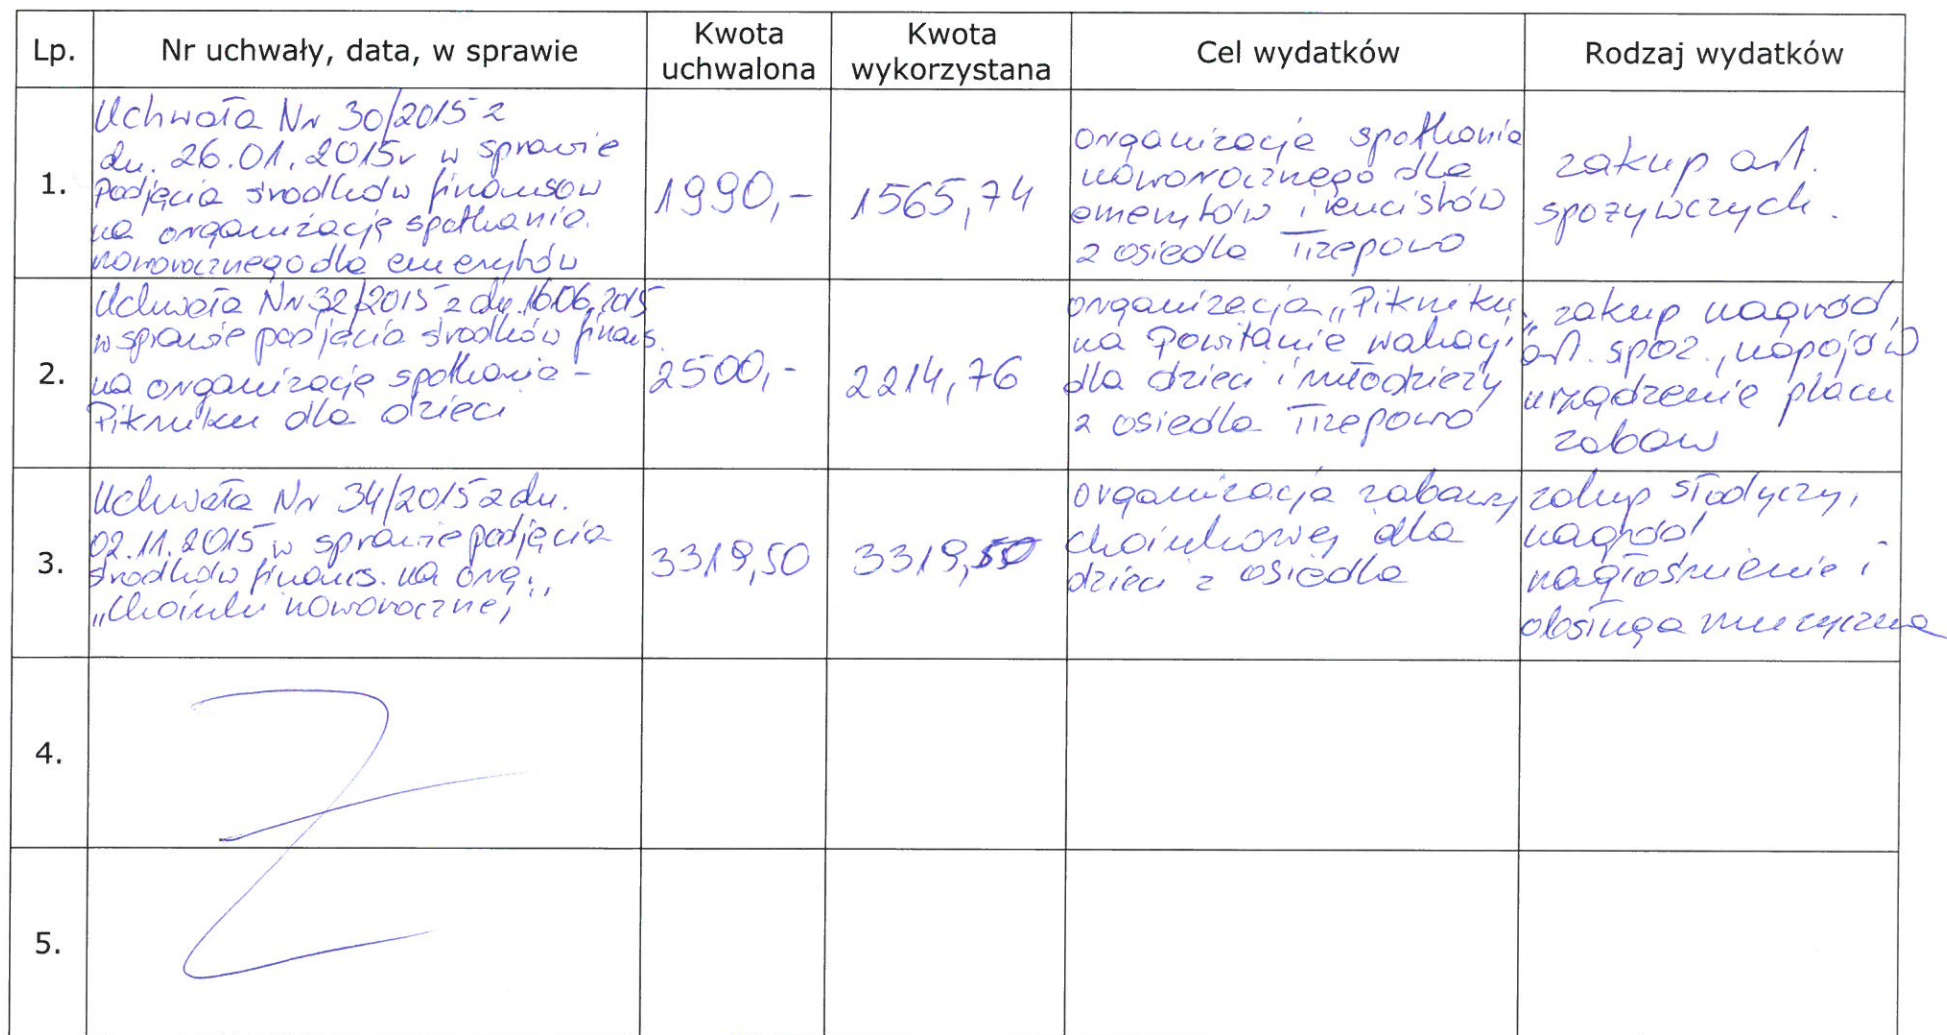 Lp.
Nr uchwały, data, w sprawie
Kwota
uchwalona
Kwota
wykorzystana
Cel wydatków
Rodzaj wydatków
1.
Uchwała Nr 30/2015 z
dn. 26.01.2015r w sprawie
Podjęcia środków finansow
na organizację spotkania
noworocznego dla emerytów
1990,-
1565,74
organizacja spotkania
noworocznego dla
emerytów i rencistów
z osiedla Trzepowo
zakup art.
spożywczych.
2.
Uchwała Nr 32/2015 z dn. 16.06.2015
w sprawie podjęcia środków finans.
na organizację spotkania -
Pikniku dla dzieci
2500,-
2214,76
organizacja „Pikniku
na Powitanie wakacji"
dla dzieci i młodzieży
z osiedla Trzepowo
zakup nagród,
art. spoż., napojów
urządzenie placu
zabaw
3.
Uchwała Nr 34/2015 z dn.
02.11.2015 w sprawie podjęcia
środków finans. na org.
„Choinki noworocznej"
3319,50
3319,50
organizacja zabawy
choinkowej dla
dzieci z osiedla
zakup słodyczy,
nagród
nagłośnienie i
obsługa muzyczna
4.
5.